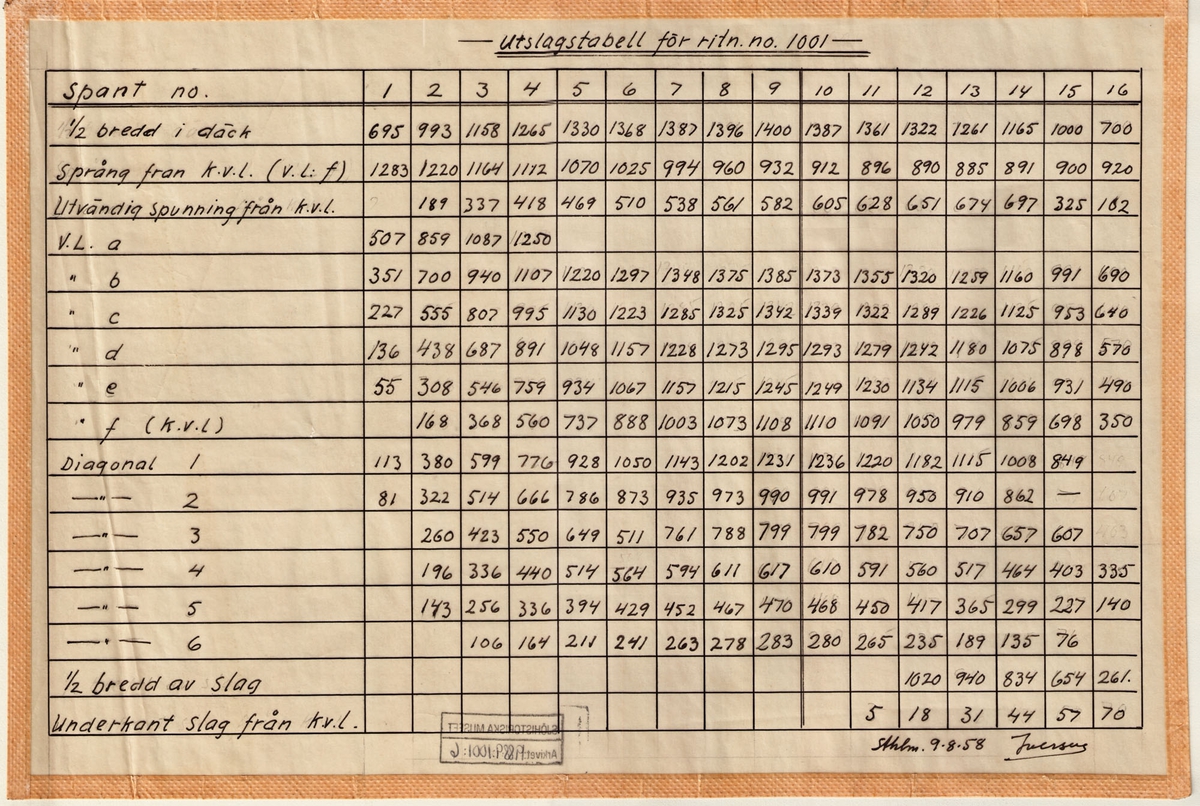 — Utslagstabell för ritn. no. 1001 —
Spant no. 1 2 3 4 5 6 7 8 9 10 11 12 13 14 15 16
1/2 bredd i däck 695 993 1158 1265 1330 1368 1387 1396 1400 1387 1361 1322 1261 1165 1000 700
Språng från K.v.l. (V.L: f) 1283 1220 1164 1112 1070 1025 994 960 932 912 896 890 885 891 900 920
Utvändig spunning från K.v.l. 189 337 418 469 510 538 561 582 605 628 651 674 697 325 102
V.L. a 507 859 1087 1250
" b 351 700 940 1107 1220 1297 1348 1375 1385 1373 1355 1320 1259 1160 991 690
" c 227 555 807 995 1130 1223 1285 1325 1342 1339 1322 1289 1226 1125 953 640
" d 136 438 687 891 1048 1157 1228 1273 1295 1293 1279 1242 1180 1075 898 570
" e 55 308 546 759 934 1067 1157 1215 1245 1249 1230 1134 1115 1006 931 490
" f (K.v.l) 168 368 560 737 888 1003 1073 1108 1110 1091 1050 979 859 698 350
Diagonal 1 113 380 599 776 928 1050 1143 1202 1231 1236 1220 1182 1115 1008 849
—"— 2 81 322 514 666 786 873 935 973 990 991 978 950 910 862 —
—"— 3 260 423 550 649 511 761 788 799 799 782 750 707 657 607
—"— 4 196 336 440 514 564 594 611 617 610 591 560 517 464 403 335
—"— 5 143 256 336 394 429 452 467 470 468 450 417 365 299 227 140
—"— 6 106 164 211 241 263 278 283 280 265 235 189 135 76
1/2 bredd av slag 1020 940 834 654 261.
Underkant slag från K.v.l. 5 18 31 44 57 70
SJÖHISTORISKA MUSEET
Arkivet
Sthlm. 9.8.58